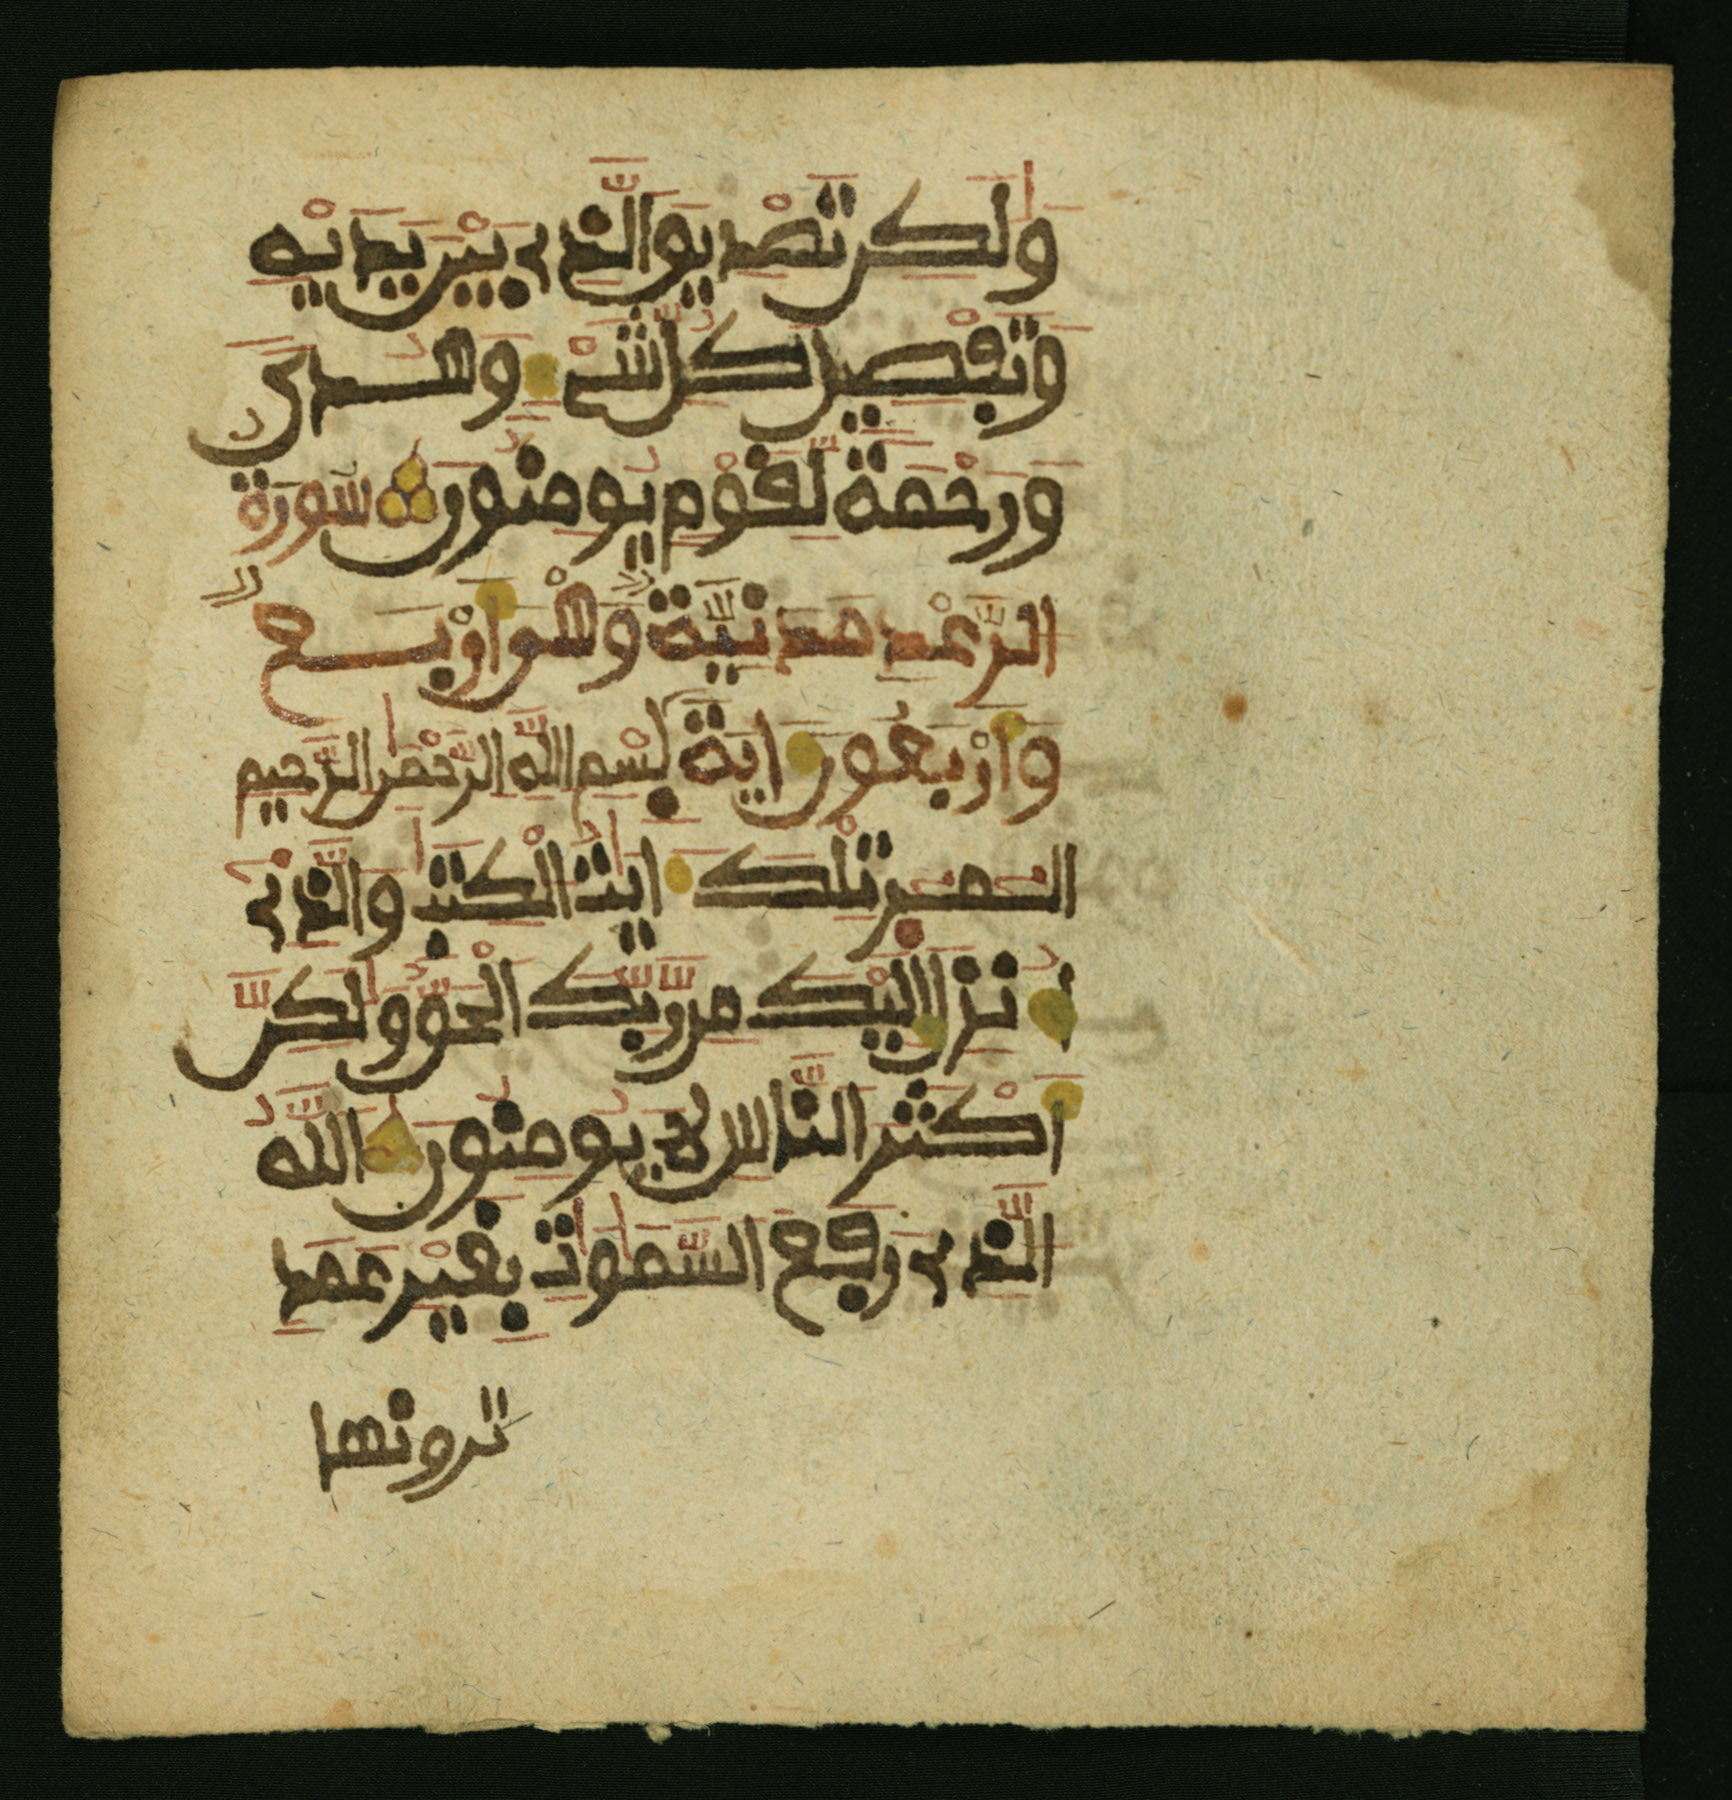 وَلَٰكِن تَصْدِيقَ الَّذِي بَيْنَ يَدَيْهِ
وَتَفْصِيلَ كُلِّ شَيْءٍ وَهُدًى
وَرَحْمَةً لِّقَوْمٍ يُومِنُونَ سُورَةُ
الرَّعْدِ مَدَنِيَّةٌ وَهْوَ أَرْبَعٌ
وَأَرْبَعُونَ ايَةً بِسْمِ اللَّهِ الرَّحْمَٰنِ الرَّحِيمِ
الٓمٓر تِلْكَ ايَٰتُ الْكِتَٰبِ وَالَّذِي
أُنزِلَ إِلَيْكَ مِن رَّبِّكَ الْحَقُّ وَلَٰكِنَّ
أَكْثَرَ النَّاسِ لَا يُومِنُونَ اللَّهُ
الَّذِي رَفَعَ السَّمَٰوَٰتِ بِغَيْرِ عَمَدٍ
ترونها